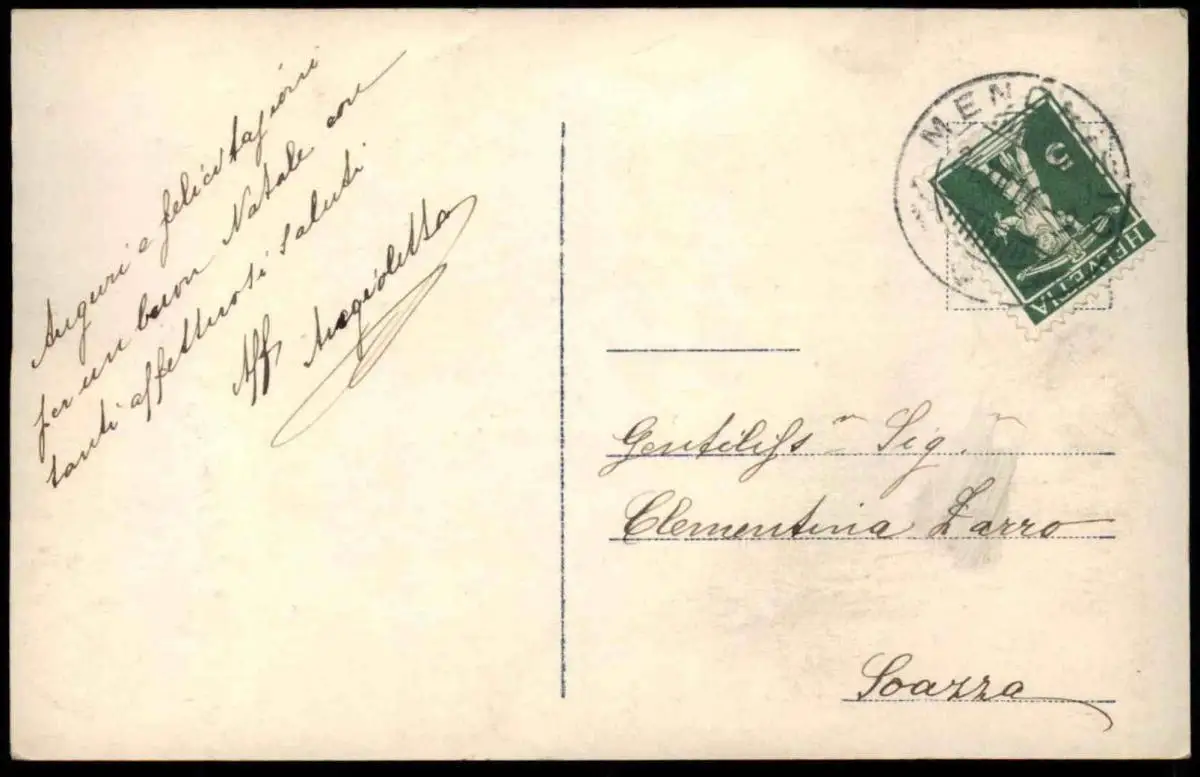 Auguri e felicitazioni
per un buon Natale con
tanti affettuosi saluti.
Aff. Angioletta
HELVETIA
5
Gentiliss ma Sig. na
Clementina Zarro
Soazza